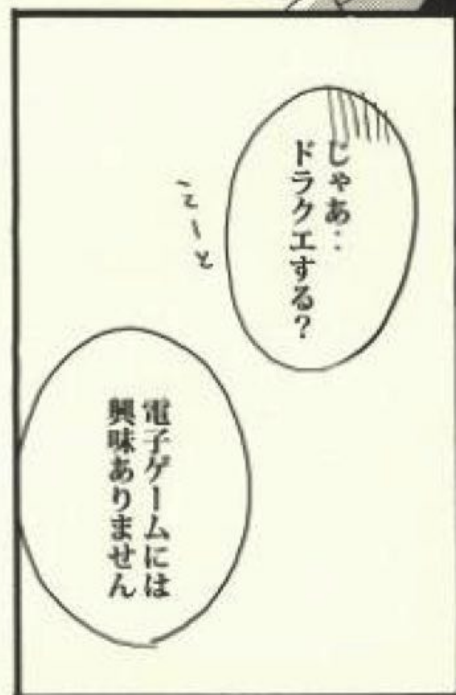 じゃあ‥
ドラクエする?
えーと
電子ゲームには
興味ありません